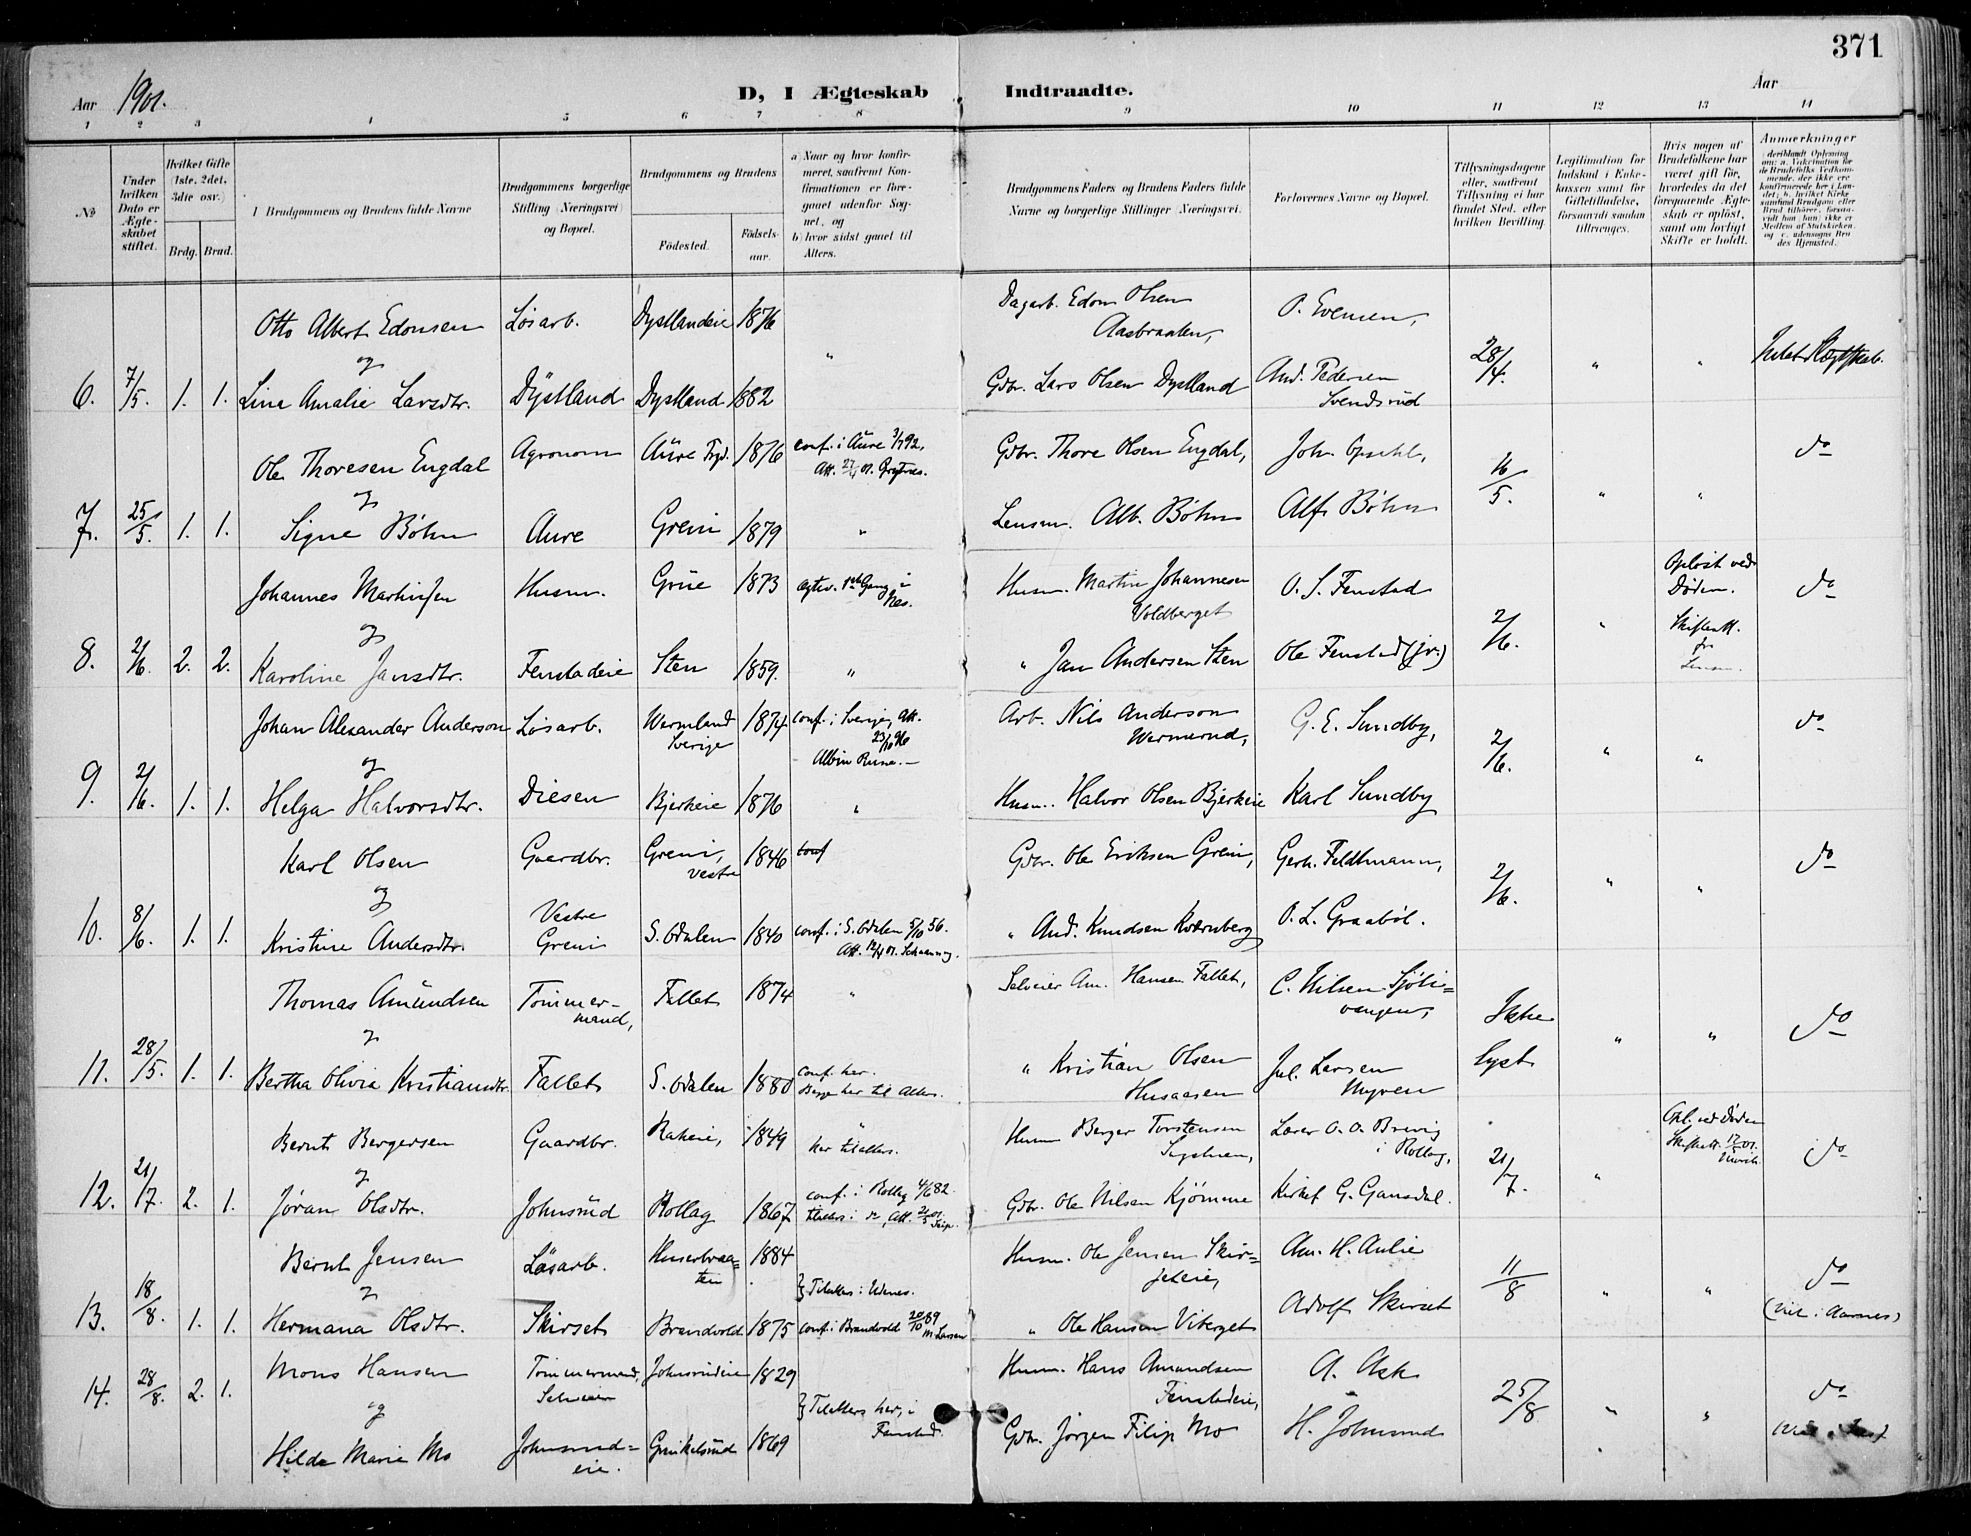 371
Aar 1901.
D, I Ægteskab Indtraadte.
Aar
1 2 3 4 5 6 7 8 9 10 11 12 13 14
No
Under hvilken Dato er Ægteskabet stiftet.
Hvilket Gifte (1ste, 2det, 3die osv.)
Brdg. Brud.
Brudgommens og Brudens fulde Navne
Brudgommens borgerlige Stilling (Næringsvei) og Bopæl.
Brudgommens og Brudens
Fødested. Fødselsaar.
a) Naar og hvor konfirmeret, saafremt Konfirmationen er foregaaet udenfor Sognet, og
b) hvor sidst gaaet til Alters.
Brudgommens Faders og Brudens Faders fulde Navne og borgerlige Stillinger (Næringsvei).
Forlovernes Navne og Bopæl.
Tillysningsdagene eller, saafremt Tillysning ei har fundet Sted, efter hvilken Bevilling.
Legitimation for Indskud i Enkekassen samt for Giftetilladelse, forsaavidt saadan tiltrænges.
Hvis nogen af Brudefolkene har været gift før, hvorledes da det foregaaende Ægteskab er opløst, samt om lovligt Skifte er holdt.
Anmærkninger
Otto Albert Edonsen Løsarb. Dystlandeie 1876 " Dagarb. Edon Olsen Aasbraaten, O. Evensen,
og
6. 7/5. 1. 1. Line Amalie Larsdtr. Dystland Dystland 1882 Gdbr. Lars Olsen Dystland And. Pedersen Svendsrud 28/4. " "
Ole Thoresen Engdal Agronom Aure 1876 conf. i Aure Gdbr. Thore Olsen Engdal, Joh. Opsahl, do
og
7. 25/5. 1. 1. Signe Bøhn Aure Greni 1879 " Lensm. Alb. Bøhn Alf Bøhn " "
Johannes Martinsen Husm. Grue 1873 Husm. Martin Johannesen Voldberget O. S. Fenstad Opløst ved Døden. do
og
8. 2/6. 2. 2. Karoline Jansdtr. Fenstadeie Sten 1859. " " Jan Andersen Sten Ole Fenstad (jr.) 2/6. " Skifteatt. fra Lensm.
Johan Alexander Anderson Løsarb. Wermland Sverige 1874 conf. i Sverige, Att. Arb. Nils Anderson G. E. Sundby, do
og
9. 2/6. 1. 1. Helga Halvorsdtr. Diesen Bjerkeie 1876 " Husm. Halvor Olsen Bjerkeie Karl Sundby 2/6. " "
Karl Olsen Gaardbr. Greni, vestre 1846 conf Gdbr. Ole Eriksen Greni, Gerh. Feldtmann, do
og
10. 8/6. 1. 1. Kristine Andersdtr. Vestre Greni S. Odalen 1840 conf. i S. Odalen 5/10 56. " And. Knudsen Kværnberg O. L. Graabøl. 2/6. " "
Thomas Amundsen Tømmermand, Fallet 1874 " Selveier Am. Hansen Fallet, C. Nilsen Sjølivangen, do
og
11. 28/5. 1. 1. Bertha Olivia Kristiansdtr. Fallet S. Odalen 1880 conf. her. Begge her til Alters. " Kristian Olsen Husaasen Jul. Larsen Myren Ikke lyst " "
Bernt Bergersen Gaardbr. Rakeie, 1849 " her til alters. Husm Berger Torstensen Lærer O. O. Brevig i Rollag, Opl. ved Døden do
og
12. 21/7. 2. 1. Jøran Olsdtr. Johnsrud Rollag 1867 conf. i Rollag 4/6 82. Gdbr. Ole Nilsen Kjømme Kirkes. G. Gansdal. 21/7. "
Bernt Jensen Løsarb. Huserbraaten 1884 Husm. Ole Jensen Skirseteie, Am. H. Aulie do
og
13. 18/8. 1. 1. Hermana Olsdtr. Skirset Brandvold 1875 conf. i Brandvold 20/10 89 M Larsen " Ole Hansen Viberget Adolf Skirset 11/8 " "
Mons Hansen Tømmermand, Selveier Johnsrudeie 1829 Husm. Hans Amundsen Fenstadeie, A. Ask do
og
14. 28/8. 2. 1. Hilda Marie Mo Johnsrudeie. Grinkelsrud 1869 Til alters her, i Fenstad. Gdbr. Jørgen Filip Mo H. Johnsrud 25/8 " "